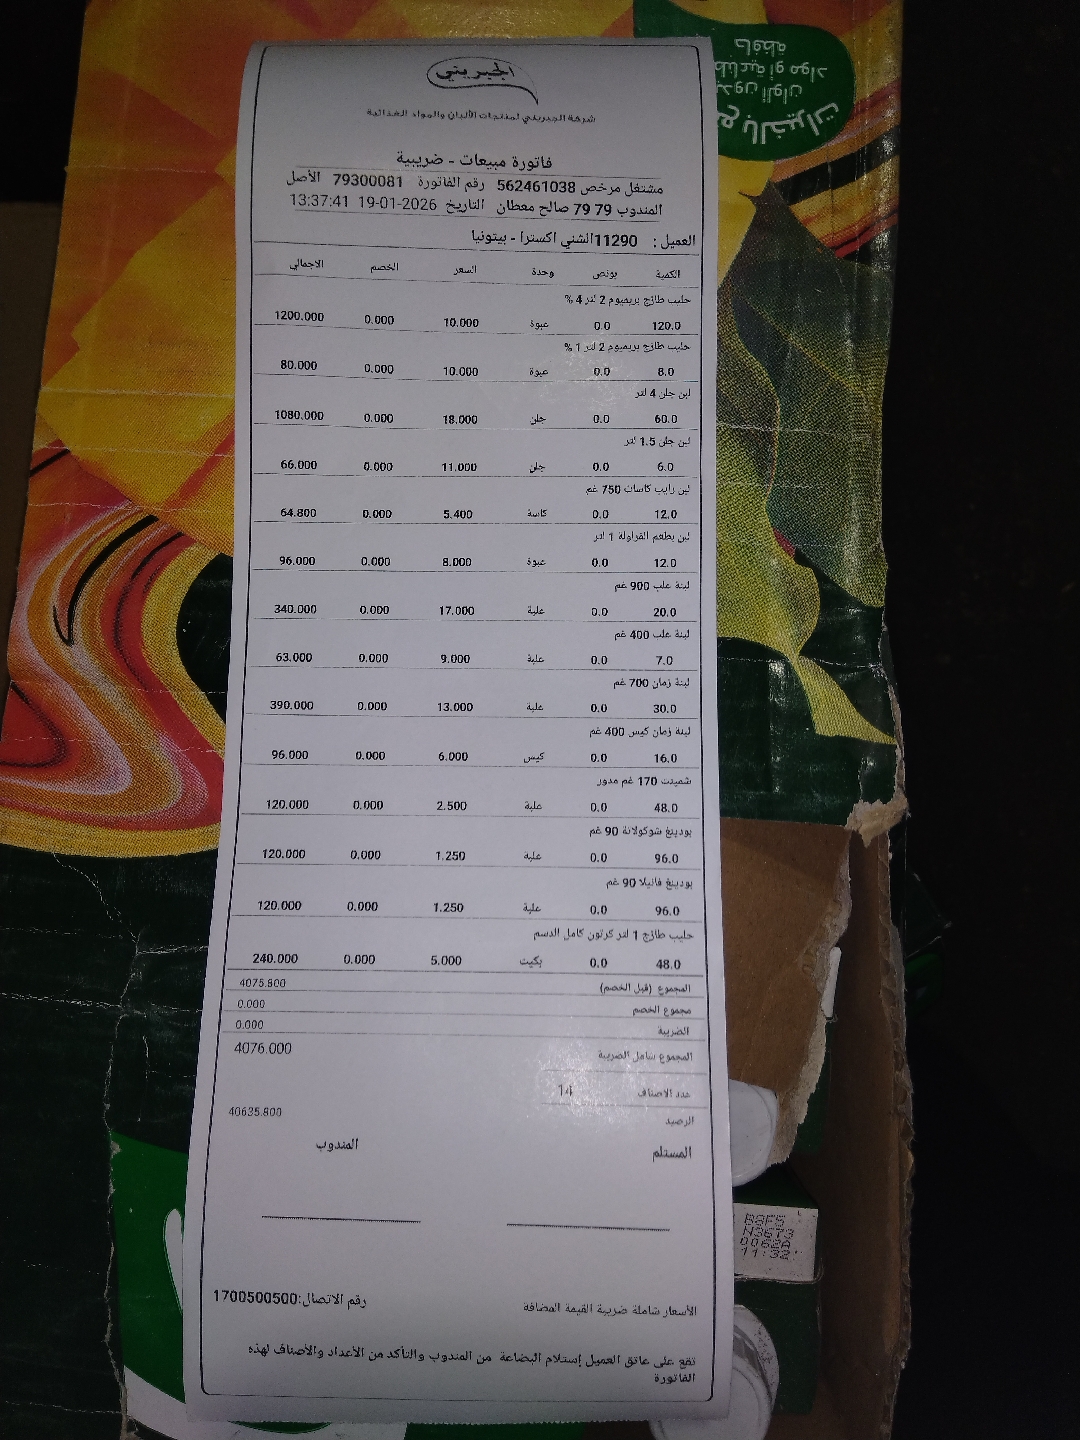 الجبريني
شركة الجبريني لمنتجات الألبان والمواد الغذائية
فاتورة مبيعات - ضريبية
مشتغل مرخص 562461038 رقم الفاتورة 79300081 الأصل
المندوب 79 79 صالح معطان التاريخ 19-01-2026 13:37:41
العميل : 11290الشني اكسترا - بيتونيا
الكمية بونص وحدة السعر الخصم الاجمالي
حليب طازج بريميوم 2 لتر 4 %
120.0 0.0 عبوة 10.000 0.000 1200.000
حليب طازج بريميوم 2 لتر 1 %
8.0 0.0 عبوة 10.000 0.000 80.000
لبن جلن 4 لتر
60.0 0.0 جلن 18.000 0.000 1080.000
لبن جلن 1.5 لتر
6.0 0.0 جلن 11.000 0.000 66.000
لبن رايب كاسات 750 غم
12.0 0.0 كاسة 5.400 0.000 64.800
لبن بطعم الفراولة 1 لتر
12.0 0.0 عبوة 8.000 0.000 96.000
لبنة علب 900 غم
20.0 0.0 علبة 17.000 0.000 340.000
لبنة علب 400 غم
7.0 0.0 علبة 9.000 0.000 63.000
لبنة زمان 700 غم
30.0 0.0 علبة 13.000 0.000 390.000
لبنة زمان كيس 400 غم
16.0 0.0 كيس 6.000 0.000 96.000
شمينت 170 غم مدور
48.0 0.0 علبة 2.500 0.000 120.000
بودينغ شوكولاتة 90 غم
96.0 0.0 علبة 1.250 0.000 120.000
بودينغ فانيلا 90 غم
96.0 0.0 علبة 1.250 0.000 120.000
حليب طازج 1 لتر كرتون كامل الدسم
48.0 0.0 بكيت 5.000 0.000 240.000
المجموع (قبل الخصم) 4075.800
مجموع الخصم 0.000
الضريبة 0.000
المجموع شامل الضريبة 4076.000
عدد الاصناف 14
الرصيد 40635.800
المستلم المندوب
الأسعار شاملة ضريبة القيمة المضافة رقم الاتصال:1700500500
تقع على عاتق العميل إستلام البضاعة من المندوب والتأكد من الأعداد والأصناف لهذه
الفاتورة
بالخيرات
بدون ألوان
أو مواد
حافظة